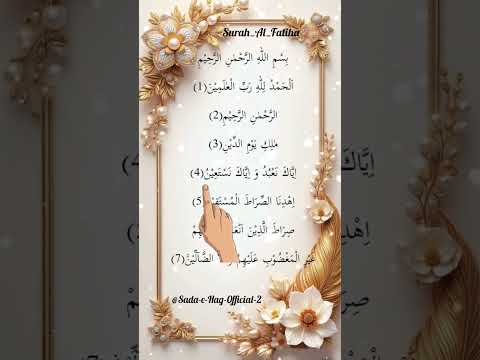 Surah_Al_Fatiha
بِسْمِ اللّٰهِ الرَّحْمٰنِ الرَّحِيْمِ
اَلْحَمْدُ لِلّٰهِ رَبِّ الْعٰلَمِيْنَ(1)
الرَّحْمٰنِ الرَّحِيْمِ(2)
مٰلِكِ يَوْمِ الدِّيْنِ(3)
اِيَّاكَ نَعْبُدُ وَ اِيَّاكَ نَسْتَعِيْنُ(4)
اِهْدِنَا الصِّرَاطَ (5)
صِرَاطَ الَّذِيْنَ
غَيْرِ الْمَغْضُوْبِ عَلَيْهِمْ الضَّآلِّيْنَ(7)
@Sada-e-Haq-Official-2